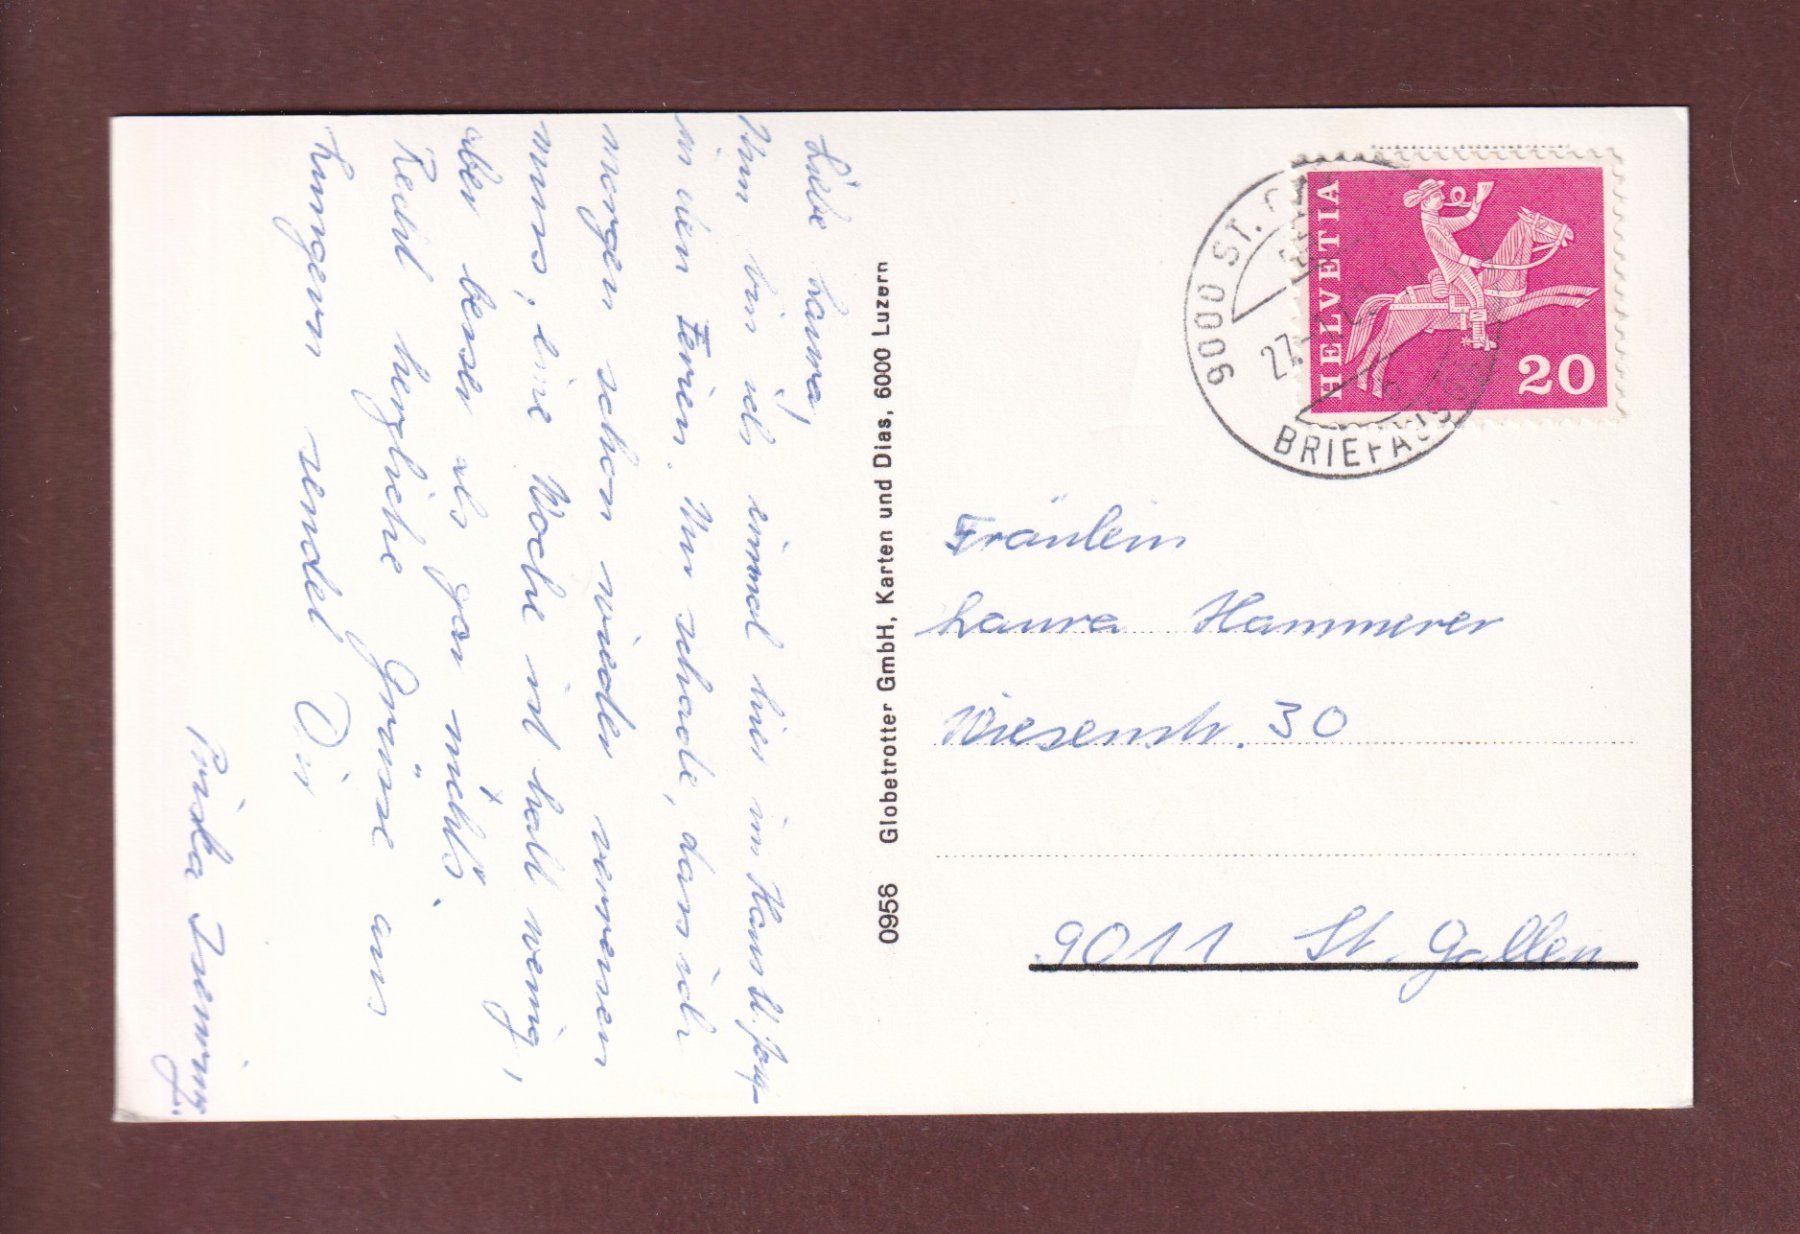 Liebe Laura,
Nun bin ich einmal hier im Haus St. Jos-
in den Ferien. Nur schade, dass ich
morgen schon wieder verreisen
muss, eine Woche ist halt wenig,
aber besser als gar nichts.
Recht herzliche Grüsse aus
Lungern sendet Dir
Priska
0956 Globetrotter GmbH, Karten und Dias, 6000 Luzern
HELVETIA
20
9000 ST.
27.
BRIEFA
Fräulein
Laura Hammerer
Wiesenstr. 30
9011 St. Gallen